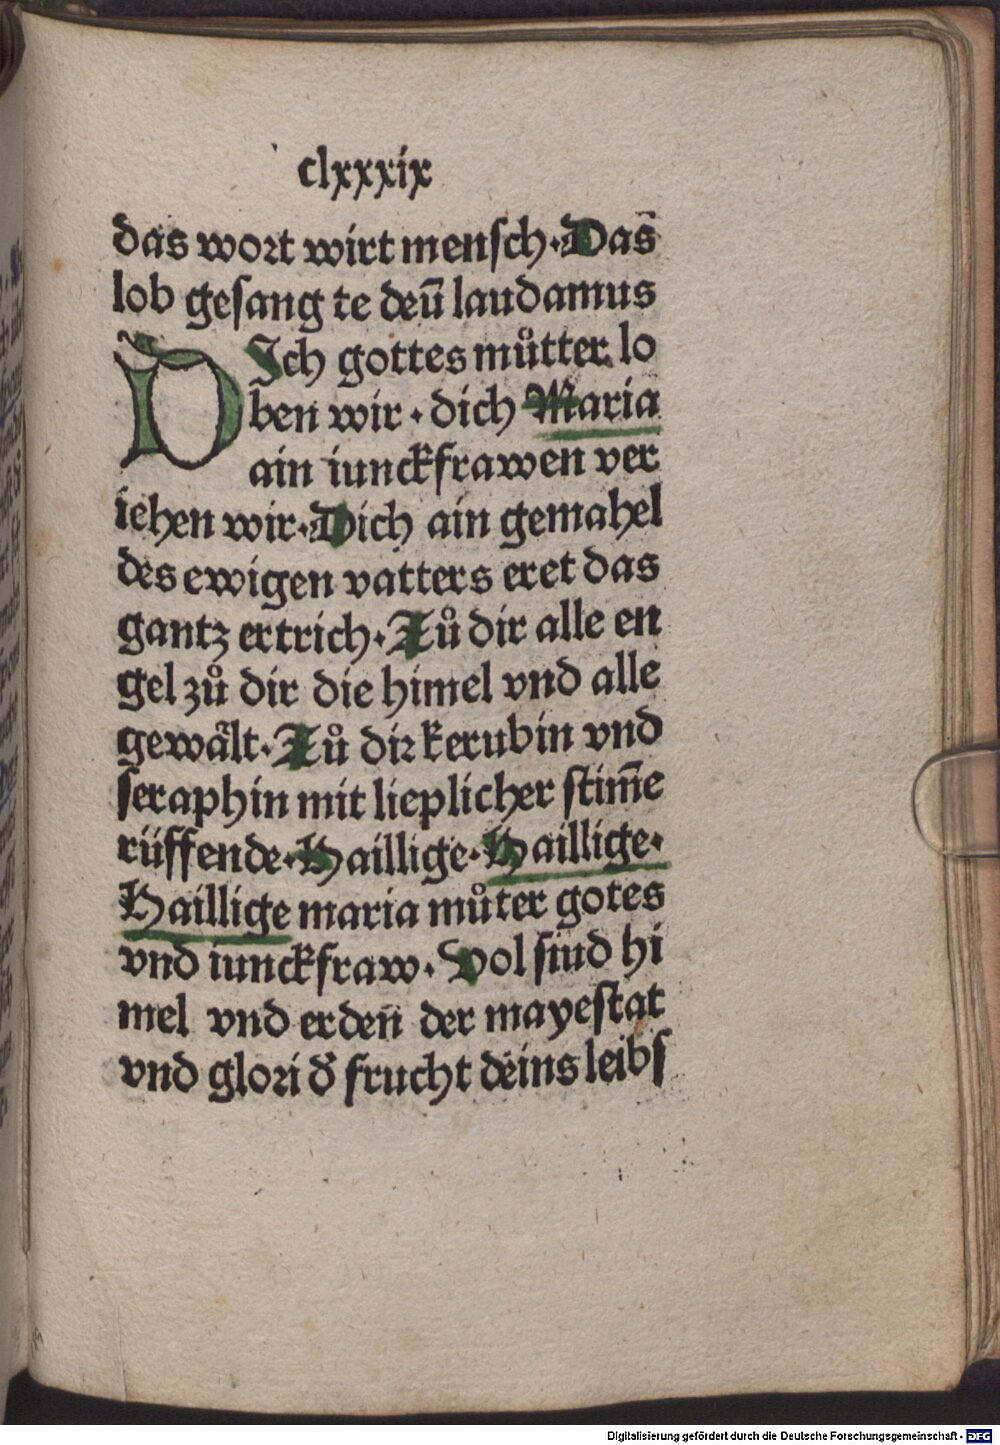 clxxxix
das wort wirt mensch·Das̄
lob gesang te deū laudamus
DIch gottes můtter lo
ben wir · dich Maria
ain iunckfrawen ver
iehen wir·Dich ain gemahel
des ewigen vatters eret das
gantz ertrich·Zů dir alle en
gel zů dir die himel vnd alle
gewålt·Zů dir kerubin vnd
seraphin mit lieplicher stim̄e
rüffende·Haillige·Haillige·
Haillige maria můter gotes
vnd iunckfraw·Vol sind hi
mel vnd erden̄ der mayestat
vnd glori d̕ frucht deins leibs
Digitalisierung gefördert durch die Deutsche Forschungsgemeinschaft - DFG